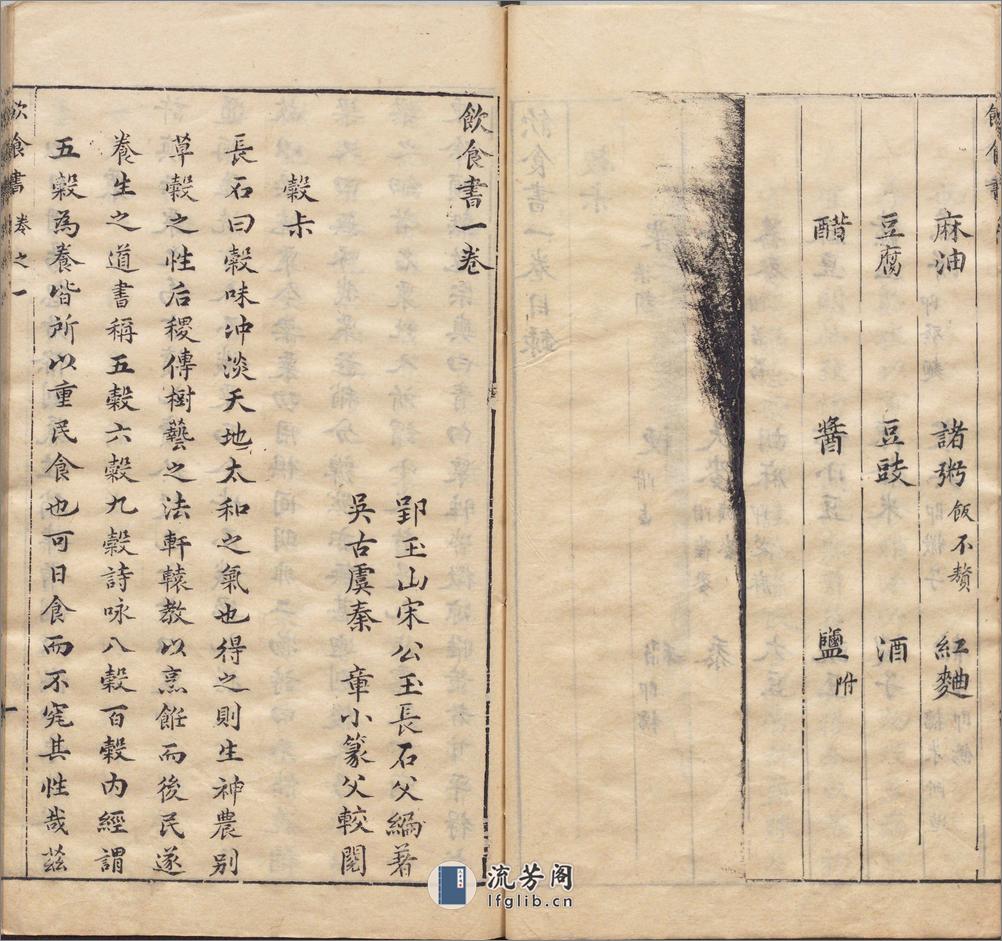 麻油 諸粥飯不贅 紅麯
豆腐 豆豉 酒
醋 醬 鹽附
飲食書一卷
郢玉山宋公玉長石父編著
吳古虞秦 章小篆父較閱
穀尗
長石曰穀味冲淡天地太和之氣也得之則生神農别
草穀之性后稷傳樹藝之法軒轅教以烹飪而後民遂
養生之道書稱五穀六穀九穀詩咏八穀百穀内經謂
五穀為養皆所以重民食也可日食而不究其性哉兹
飲食書 卷之一 一
流芳阁
lfglib.cn